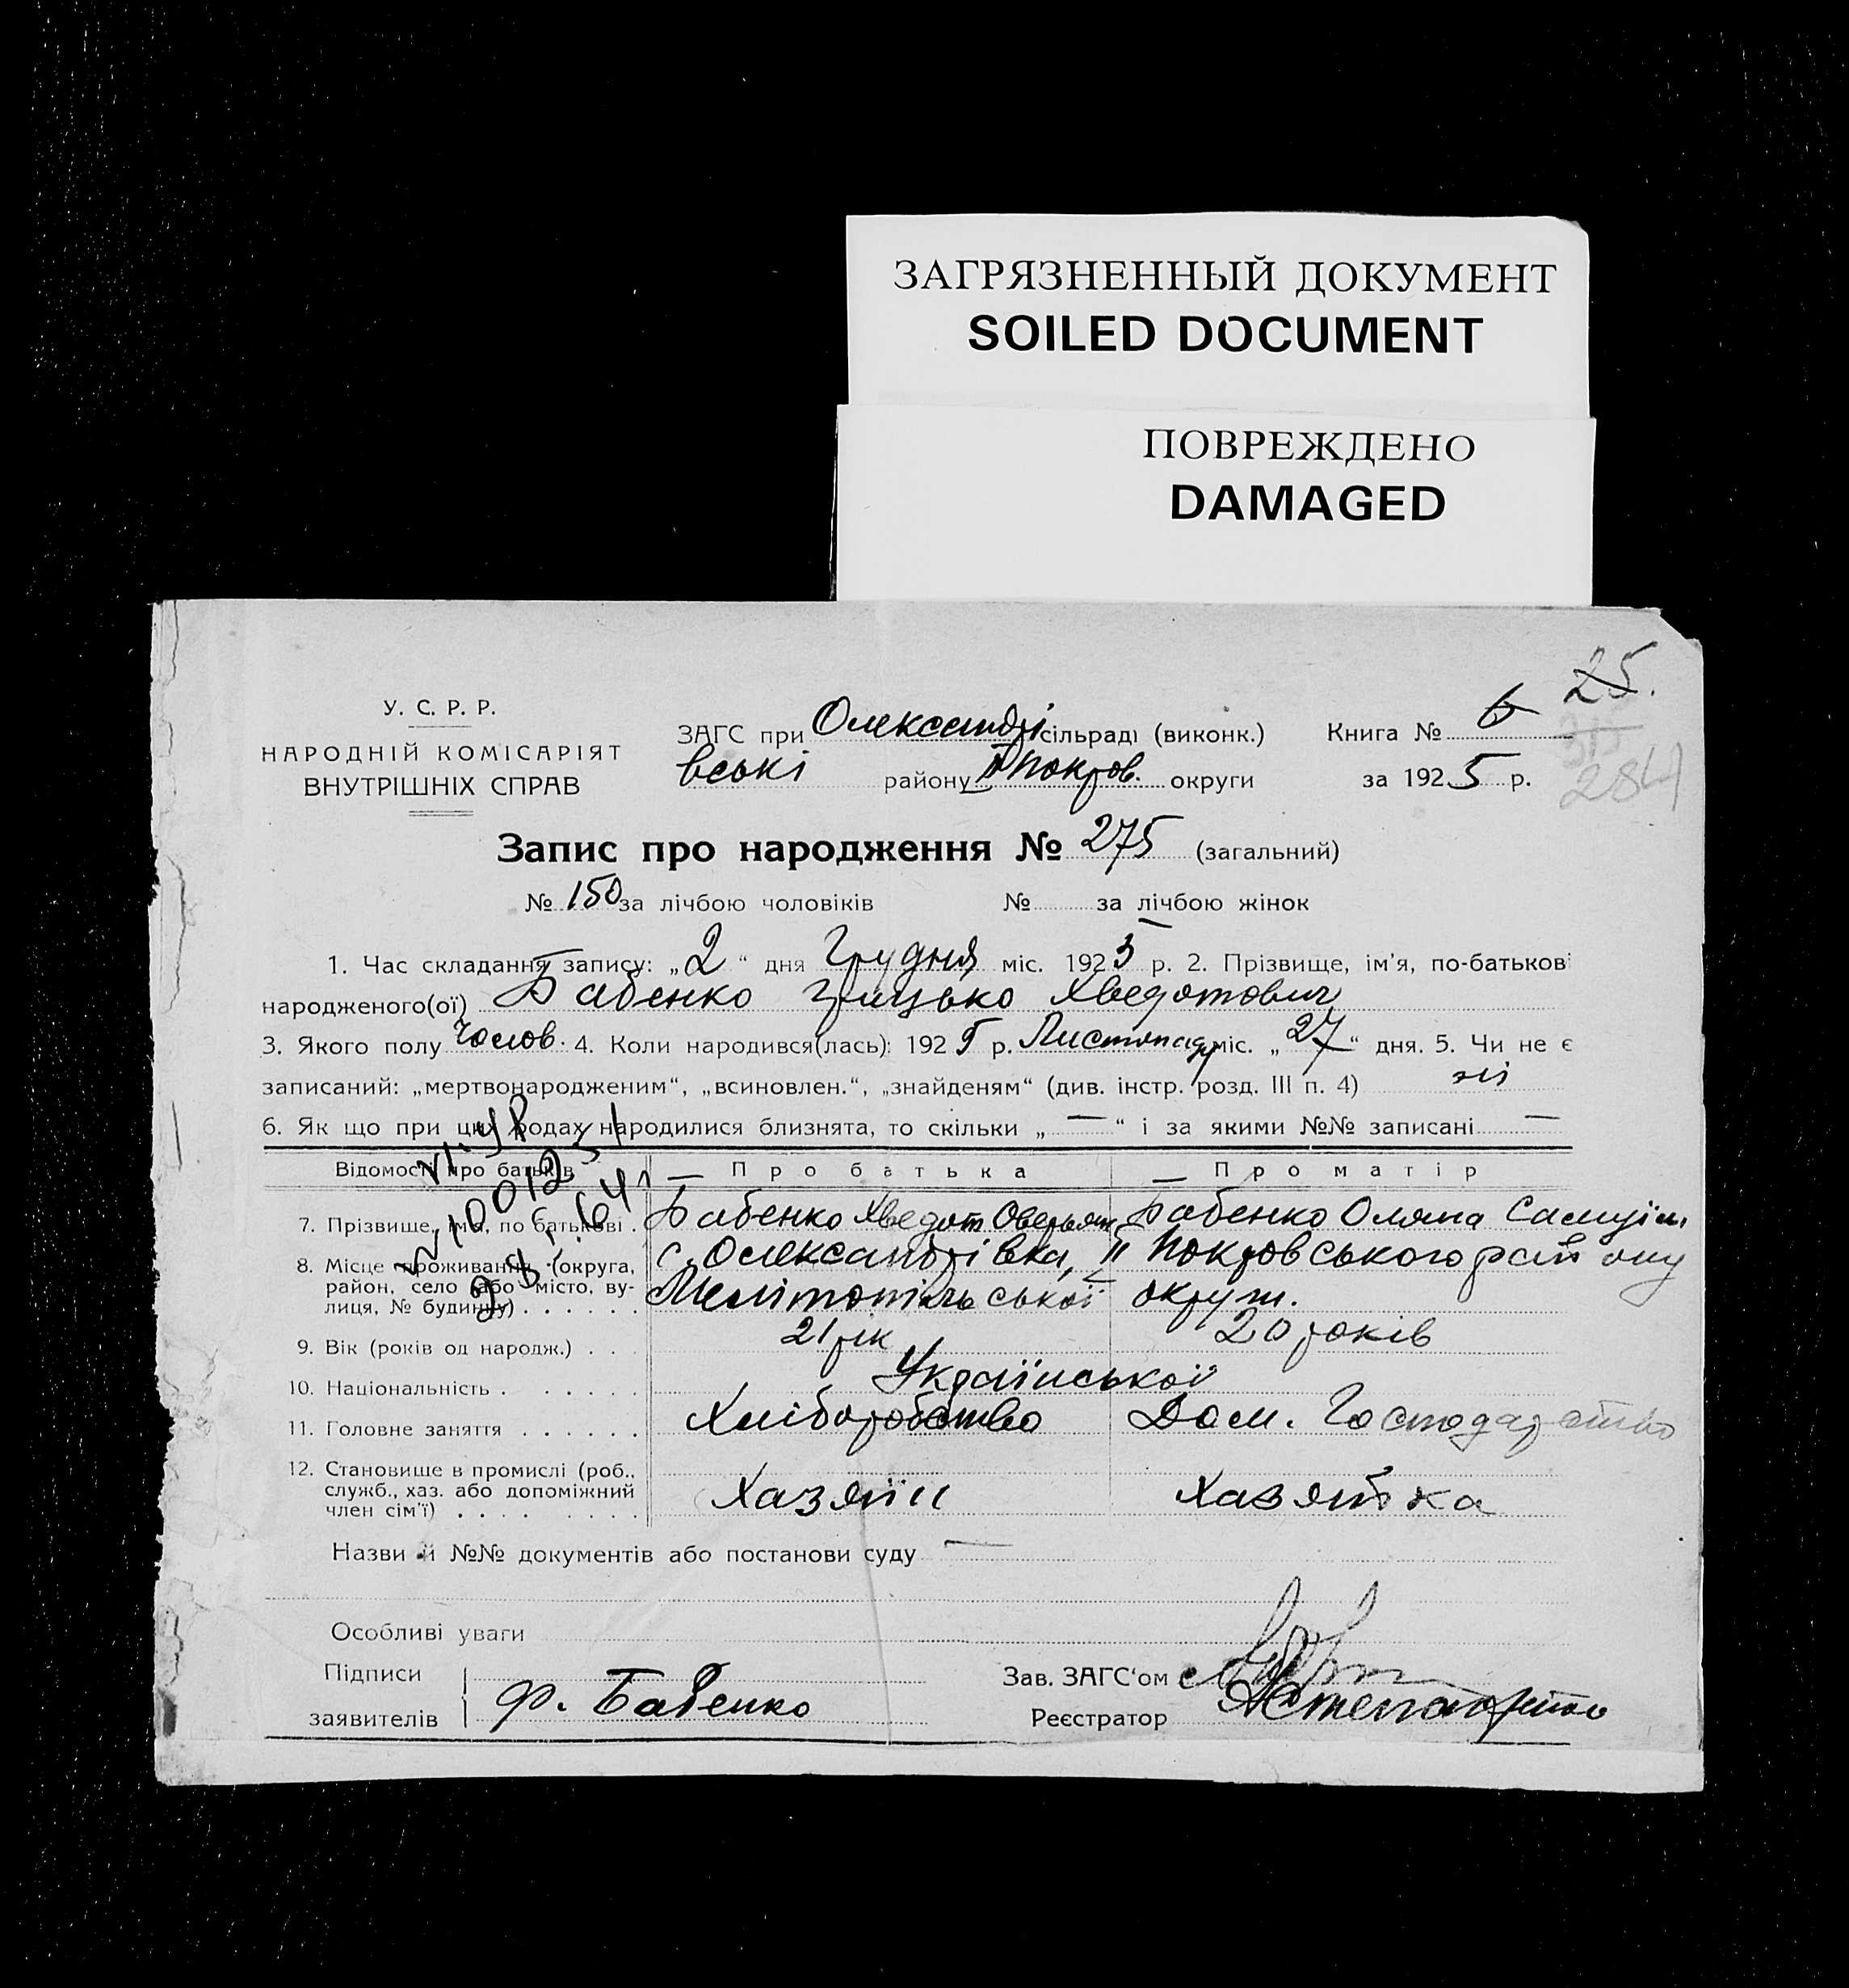 ЗАГРЯЗНЕННЫЙ ДОКУМЕНТ
SOILED DOCUMENT
ПОВРЕЖДЕНО
DAMAGED
25.
284
У. С. Р. Р.
НАРОДНІЙ КОМІСАРІЯТ
ВНУТРІШНІХ СПРАВ
ЗАГС при Олександрі сільраді (виконк.) Книга № 6
вські району II Покров. округи за 1925 р.
Запис про народження № 275 (загальний)
№ 150 за лічбою чоловіків № за лічбою жінок
1. Час складання запису: „2“ дня Грудня міс. 1925 р. 2. Прізвище, ім’я, по-батькові
народженого(ої) Бабенко Грицько Хведотович
3. Якого полу Чолов. 4. Коли народився(лась): 1925 р. Листопаду міс. „27“ дня. 5. Чи не є
записаний: „мертвонародженим“, „всиновлен.“, „знайденям“ (див. інстр. розд. III п. 4) ні
6. Як що при цих родах народилися близнята, то скільки „—“ і за якими №№ записані —
Відомості про батьків — Про батька — Про матір
7. Прізвище, ім'я, по батькові . Бабенко Хведот Оверьян. Бабенко Оляна Самуіл.
8. Місце проживання (округа, район, село або місто, вулиця, № будинку) . . . . . . с. Олександрівка, II Покровського району
Мелітопільської округи.
9. Вік (років од народж.) . . . 21 рік 20 років
10. Національність . . . . . . Української
11. Головне заняття . . . . . . Хліборобство Дом. Господарство
12. Становище в промислі (роб.,
служб., хаз. або допоміжний
член сім’ї) . . . . . . . . Хазяїн Хазяйка
Назви й №№ документів або постанови суду —
Особливі уваги
Підписи
заявителів Ф. Бабенко
Зав. ЗАГС‘ом
Реєстратор